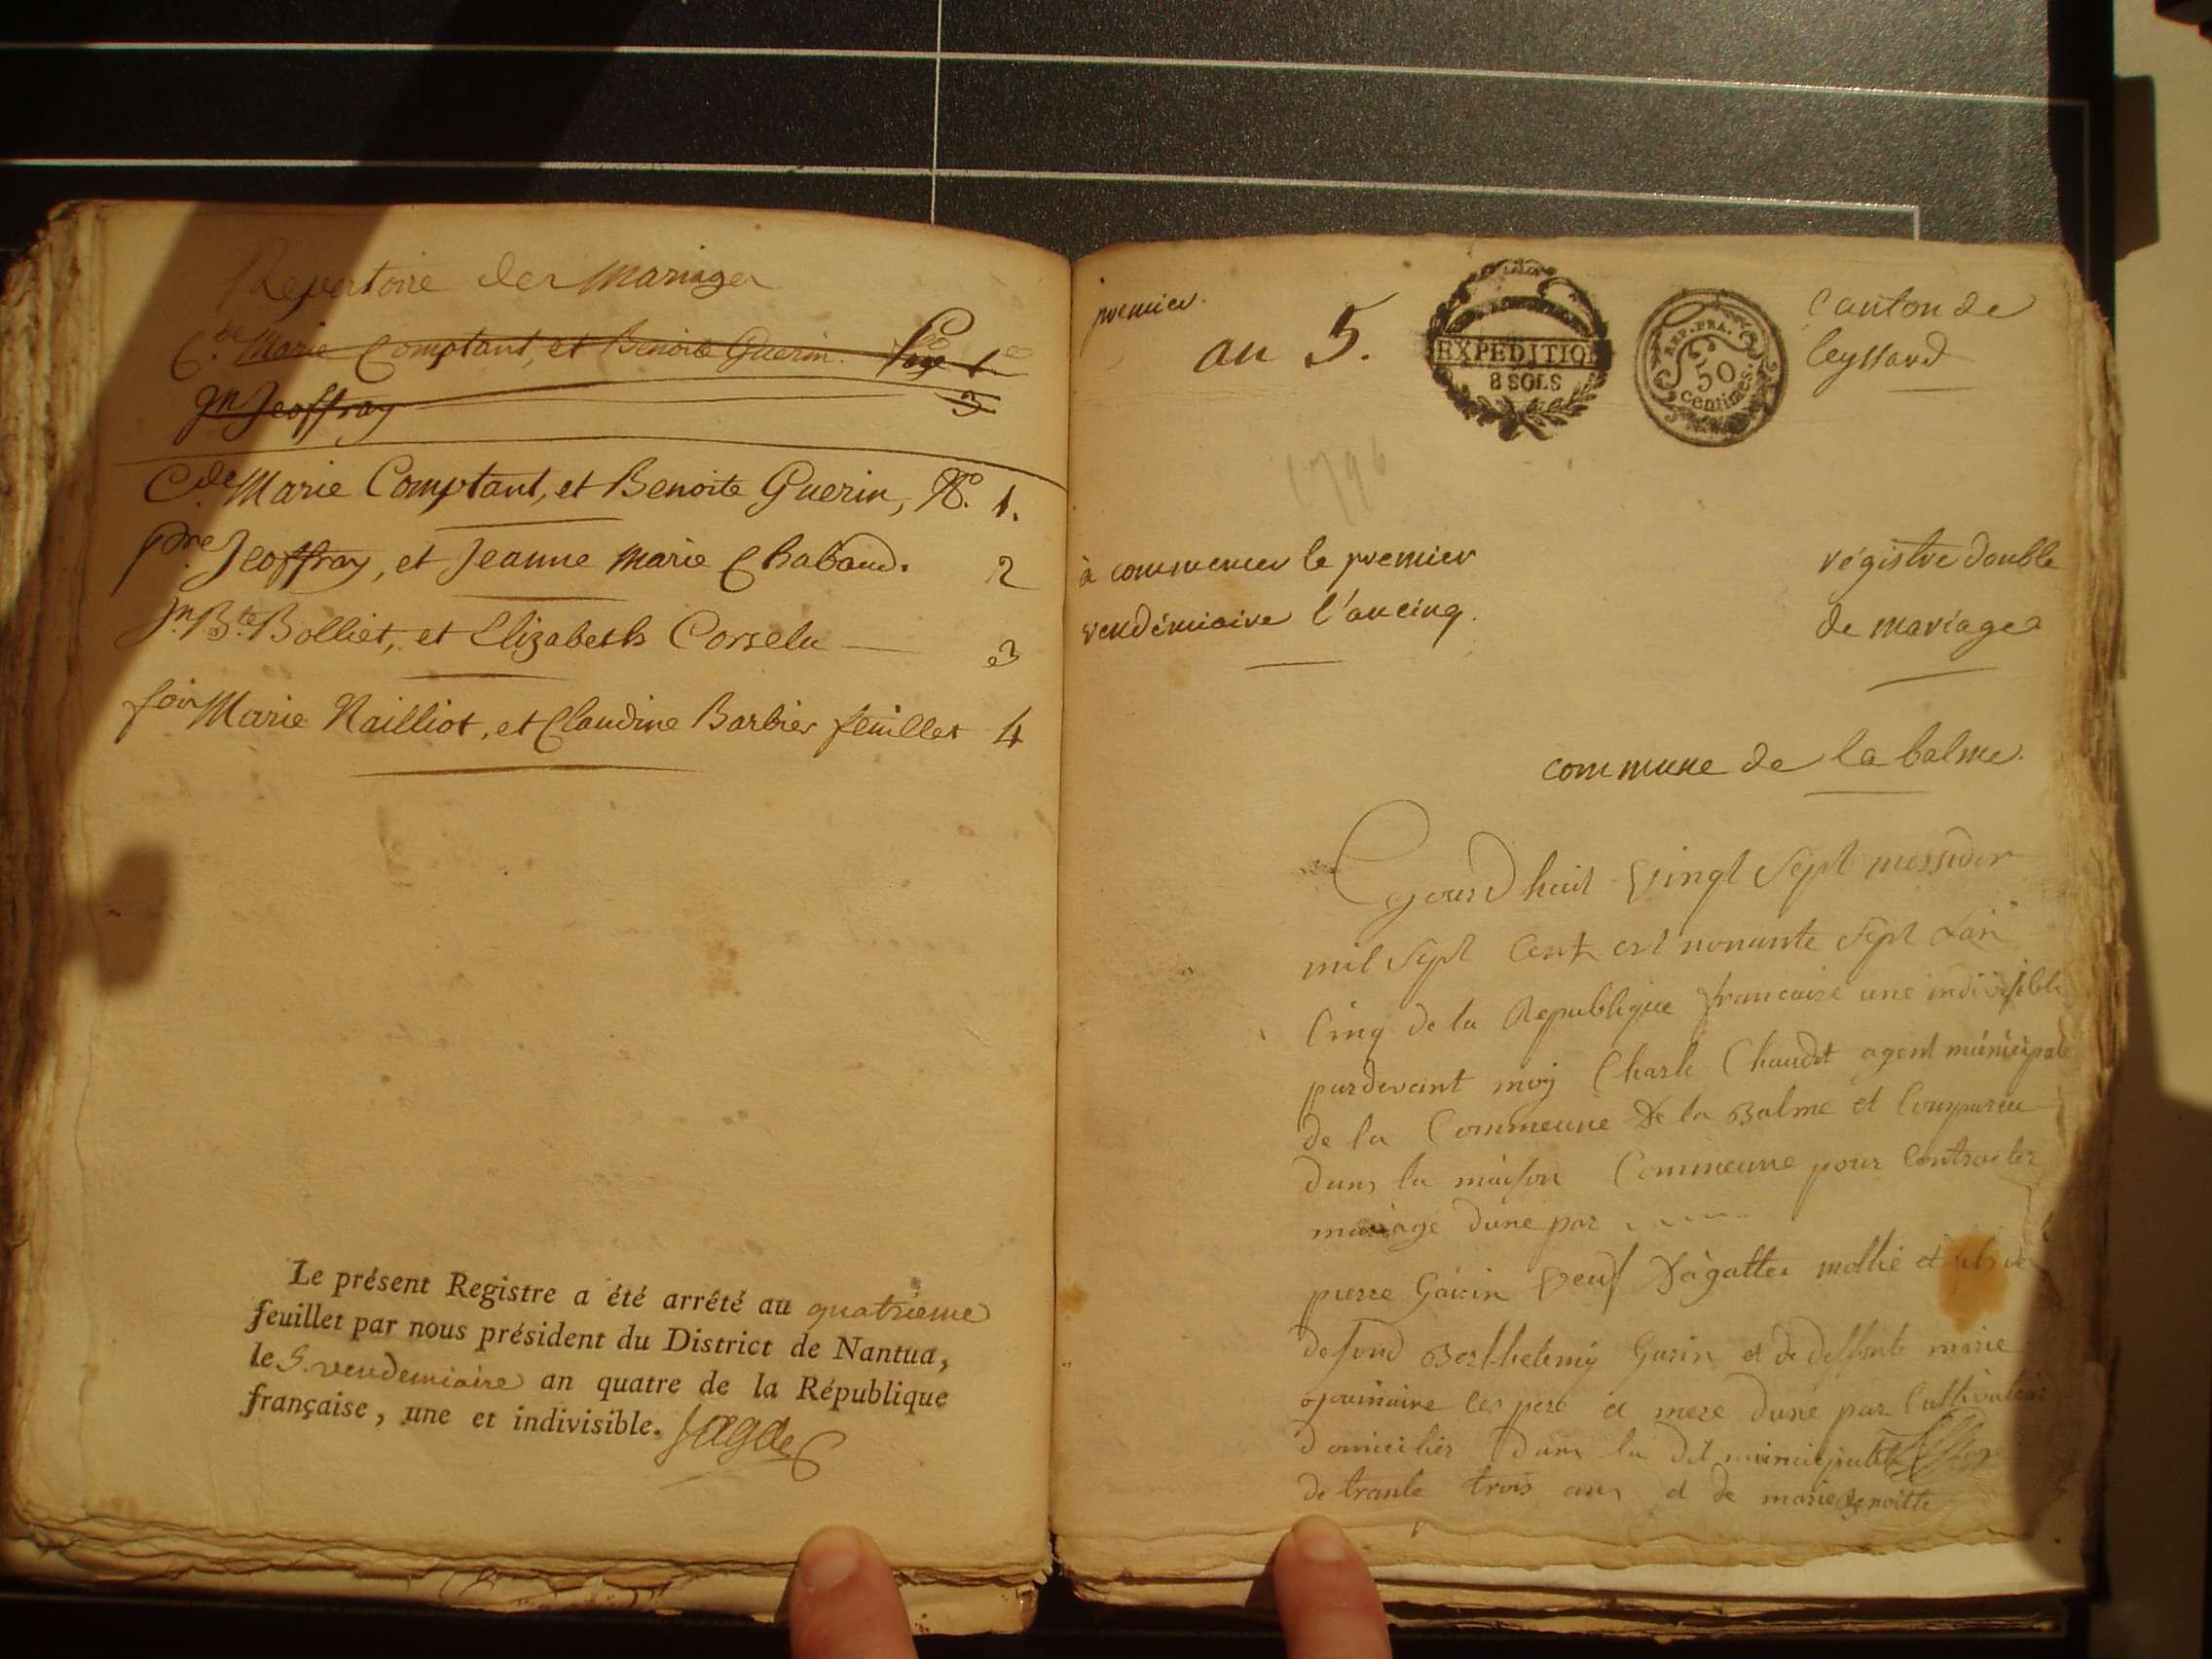 Repertoire des Mariages
C.de Marie Comptant, et Benoite Guerin. Page 1.
Jn Jeoffray 3
C.de Marie Comptant, et Benoite Guerin, No. 1.
p.re Jeoffray, et Jeanne Marie Chabaud. 2
J.n B.te Bolliet, et Elizabeth Corselu 3
Marie Nailliot, et Claudine Barbier feuillet 4
Le présent Registre a été arrêté au quatrième
feuillet par nous président du District de Nantua,
le 5. vendemiaire an quatre de la République
française, une et indivisible.
premier.
an 5.
EXPEDITION
8 SOLS
REP. FRA.
50
centimes.
Canton de
leyssard
1796
à commencer le premier
vendémiaire l'an cinq.
régistre double
de mariages
commune de la balme.
Cejourdhuit vingt sept messidor
mil sept cent est nonante sept Lan
Cinq de la Republique francaise une indivisible
pardevant moy Charle Chaudet agent municipale
de la Commeune De la Balme et Comparu
dans la maison Commeune pour Contracter
mariage dune par
pierre Garin veuf Dagatte mollie et fils de
defond Berthelemy Garin et de deffonte marie
les pere et mere dune par Cultivateur
domicilies dans la dit municipalité
de trante trois ans et de marie Benoitte